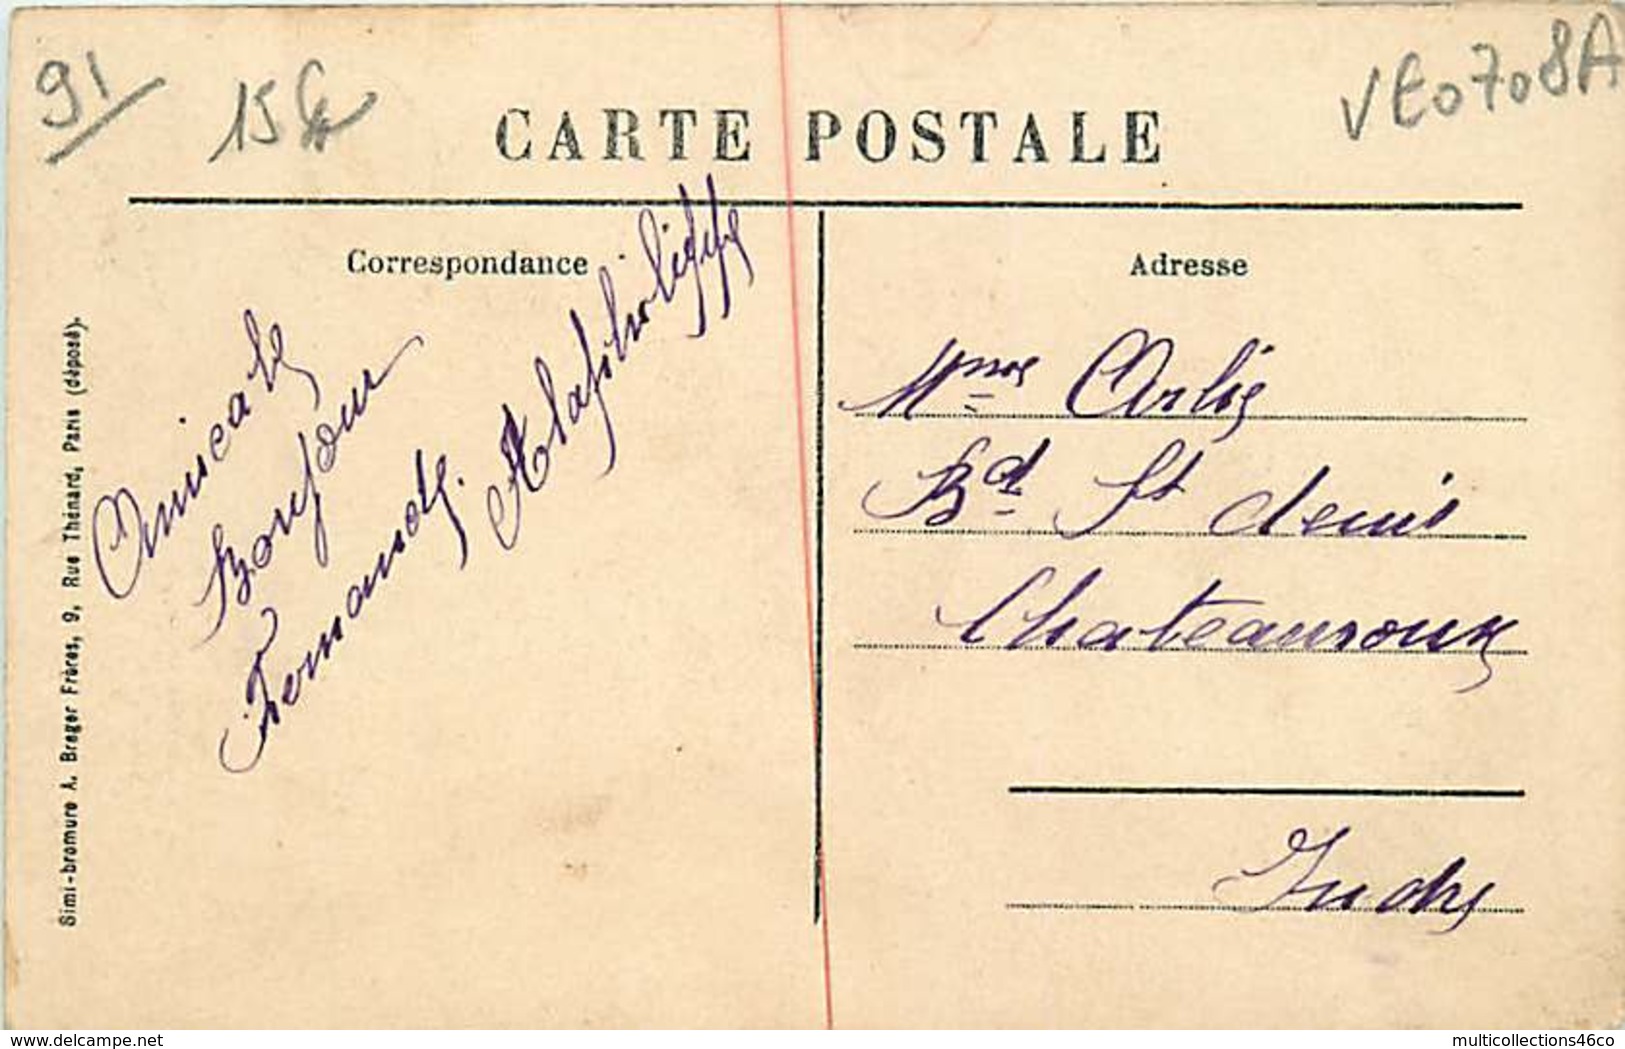 91
15
VE0708A
CARTE POSTALE
Correspondance
Adresse
Amicale
Bonjour
Fernande.
Mme
Bd St denis
Chateauroux
Indre
Simi-bromure A. Breger Frères, 9, Rue Thénard, Paris (déposé).
delcampe.net
multicollections46co